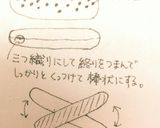 三つ織りにして縁りをつまんで
しっかりとくっつけて棒状にする。